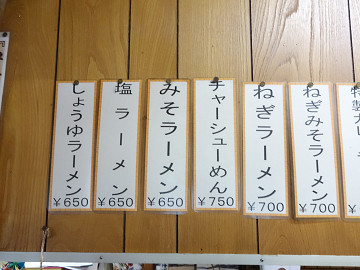 しょうゆラーメン
￥650
塩ラーメン
￥650
みそラーメン
￥650
チャーシューめん
￥750
ねぎラーメン
￥700
ねぎみそラーメン
￥700
特製カレー